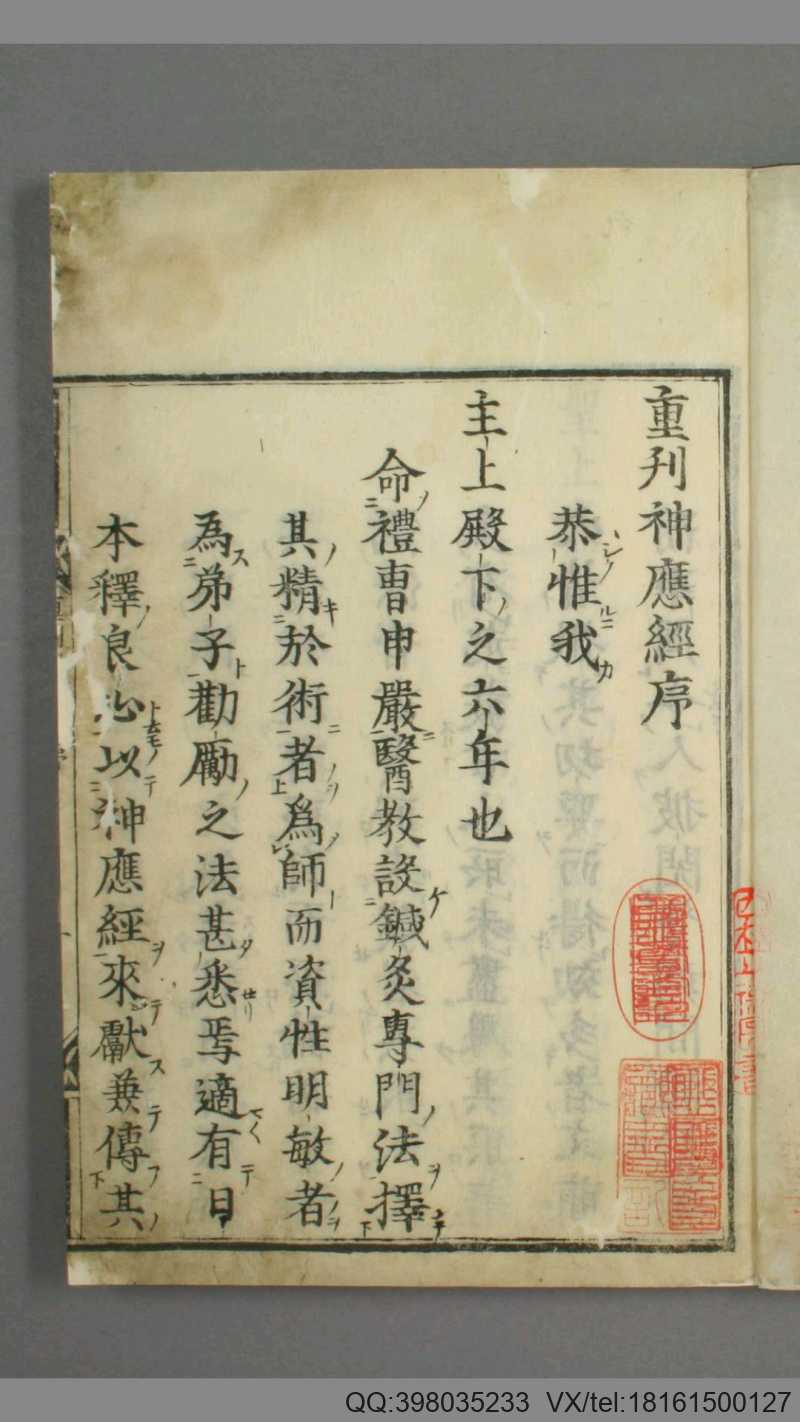 重刋神應經序
恭惟我
主上殿下之六年也
命禮曹申嚴醫教設鍼灸專門法擇
其精於術者爲師而資性明敏者
爲弟子勸勵之法甚悉焉適有日
本釋良心以神應經來獻兼傳其
QQ:398035233 VX/tel:18161500127